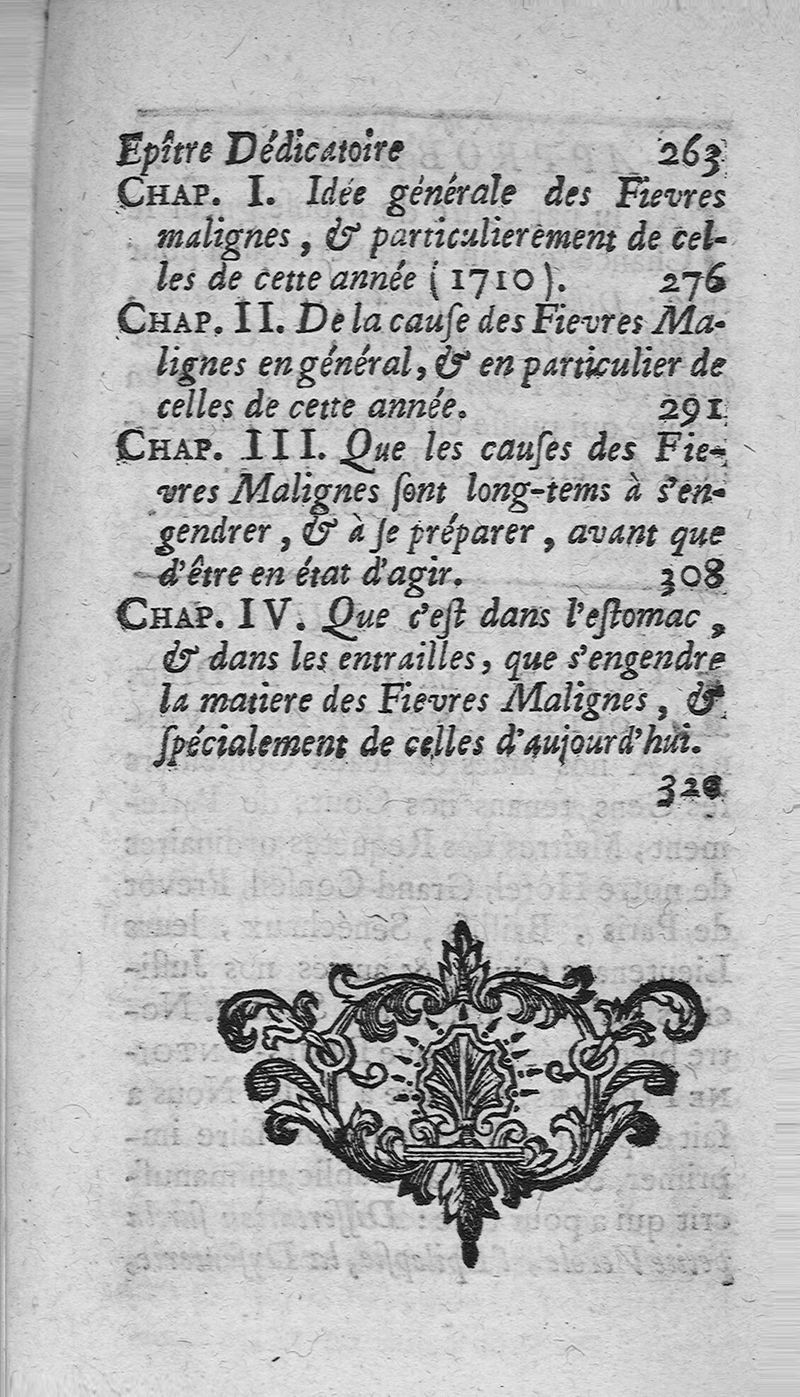 Epître Dédicatoire 263
CHAP. I. Idée générale des Fievres
malignes, & particulierement de cel-
les de cette année (1710). 276
CHAP. II. De la cauſe des Fievres Ma-
lignes en général, & en particulier de
celles de cette année. 291
CHAP. III. Que les cauſes des Fie-
vres Malignes ſont long-tems à s'en-
gendrer, & à ſe préparer, avant que
d'être en état d'agir. 308
CHAP. IV. Que c'eſt dans l'eſtomac,
& dans les entrailles, que s'engendre
la matiere des Fievres Malignes, &
ſpécialement de celles d'aujourd'hui.